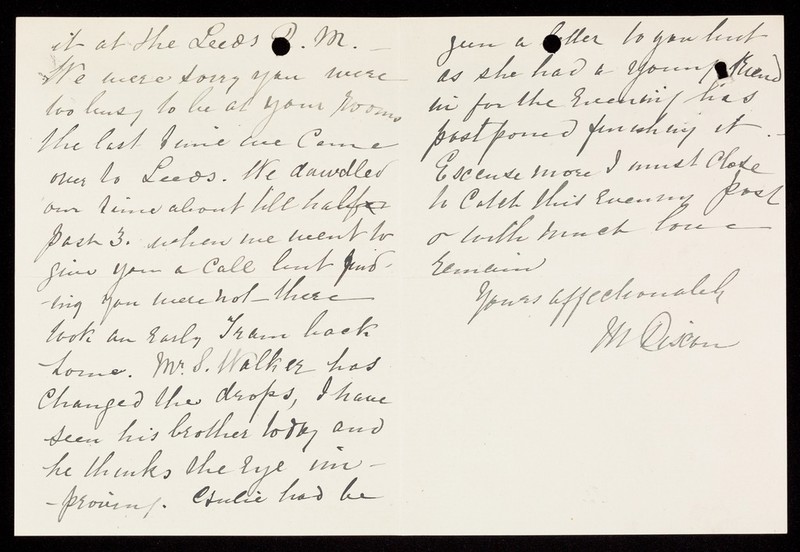 it at the Leeds P. M. —
We were sorry you were
too busy to be at your rooms
the last time we came
over to Leeds. We dawdled
our time about till half
past 3. when we went to
give you a call but find-
-ing you were not there
took an early Tram back
home. Mr. S. Walker has
changed the drops, I have
seen his brother today and
he thinks the Eye im-
-proving. had be
gun a letter to you but
as she had a young friend
in for the Evening has
postponed finishing it.
Excuse more I must close
to catch this Evening post
& with much love
remain
Yours affectionately
M Dixon